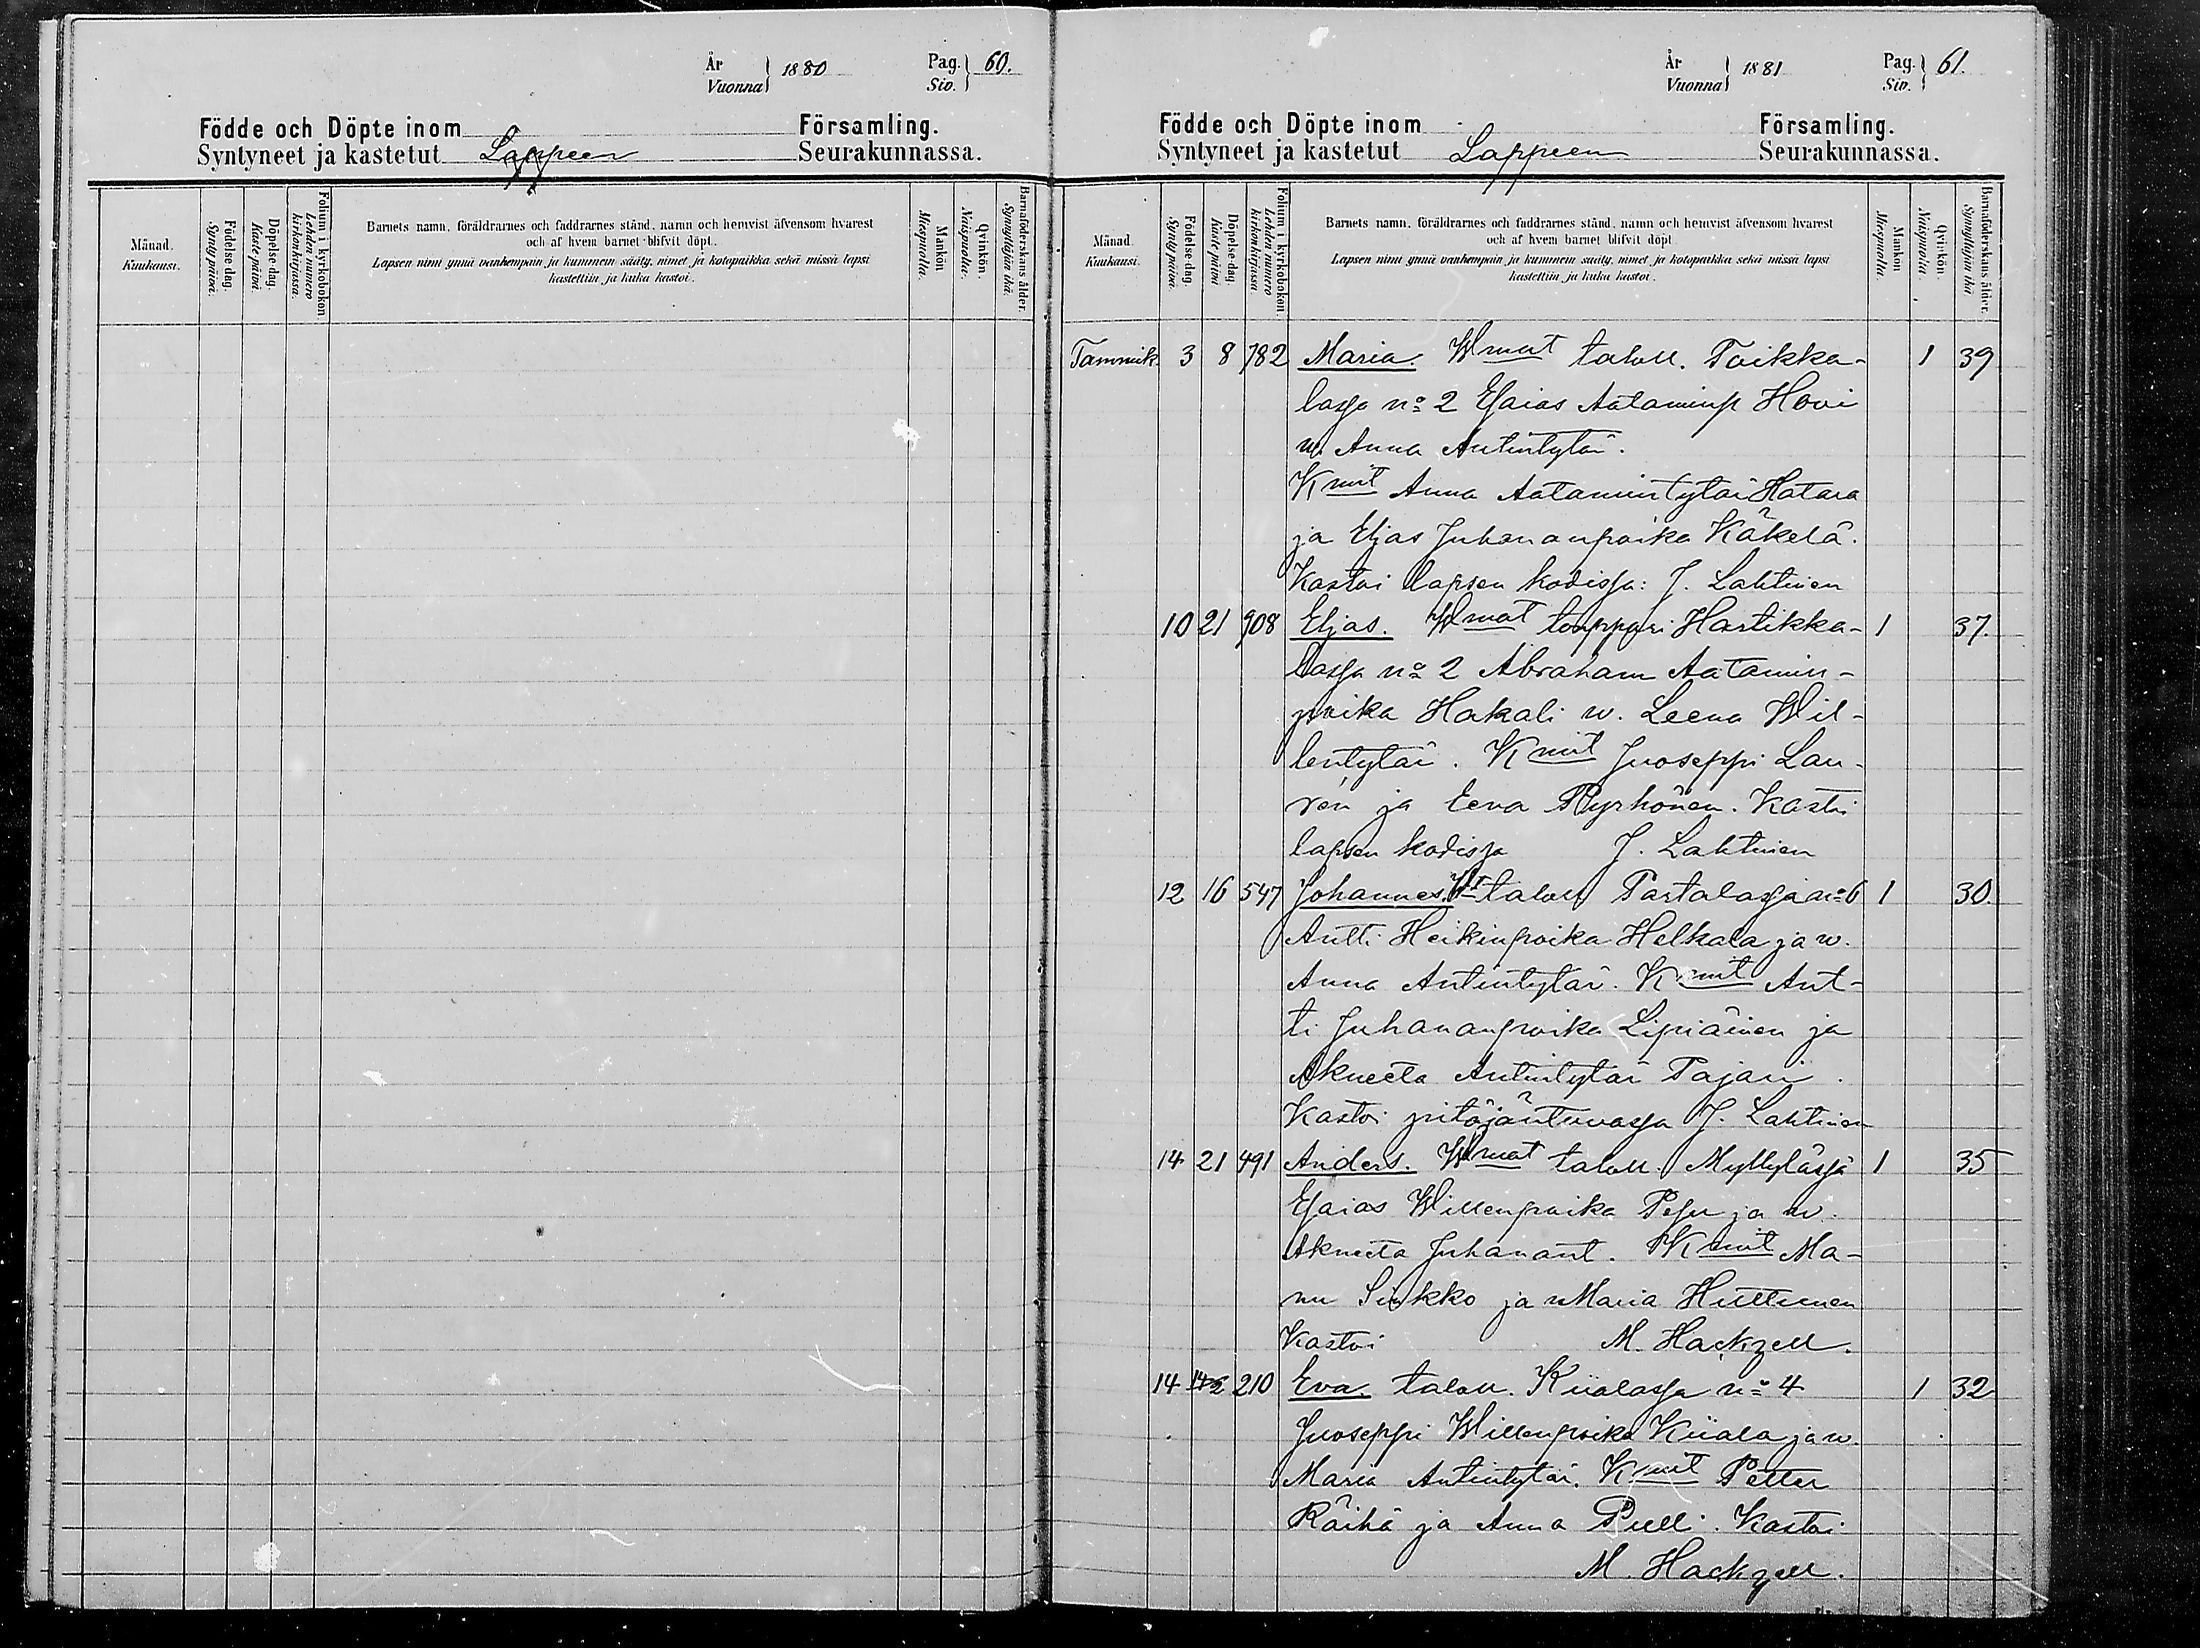 År
Vuonna } 1880
Pag.
Siv. } 60.
Födde och Döpte inom Församling.
Syntyneet ja kastetut Lappeen Seurakunnassa.
Månad.
Kuukausi.
Födelse-dag.
Synty päivä.
Döpelse-dag.
Kaste-päivä.
Folium i kyrkobokon
Lehden numero
kirkonkirjassa.
Barnets namn, föräldrarnes och faddrarnes stånd, namn och hemvist äfvensom hvarest
och af hvem barnet blifvit döpt.
Lapsen nimi ynnä vanhempain ja kummein sääty, nimet ja kotopaikka sekä missä lapsi
kastettiin ja kuka kastoi.
Mankön.
Miespuolta.
Qvinkön.
Naispuolta.
Barnaföderskans ålder.
Synnyttäjän ikä.
År
Vuonna } 1881
Pag.
Siv. } 61.
Födde och Döpte inom Församling.
Syntyneet ja kastetut Lappeen Seurakunnassa.
Månad.
Kuukausi.
Födelse-dag.
Synty päivä.
Döpelse-dag.
Kaste päivä
Folium i kyrkobokon
Lehden numero
kirkonkirjassa.
Barnets namn, föräldrarnes och faddrarnes stånd, namn och hemvist äfvensom hvarest
och af hvem barnet blifvit döpt.
Lapsen nimi ynnä vanhempain ja kummein sääty, nimet ja kotopaikka sekä missä lapsi
kastettiin ja kuka kastoi.
Mankön
Miespuolta.
Qvinkön.
Naispuolta.
Barnaföderskans ålder.
Synnyttäjän ikä.
Tammik. 3 8 782 Maria. Wmat taloll. Toikka- 1 39
lassa no 2 Esaias Aataminp Hovi
w. Anna Antintytär.
Kmit Anna Aatamintytär Hatara
ja Eljas Juhananpoika Käkelä.
Kastoi lapsen kodissa: J. Lahtinen
10 21 908 Eljas. Wmat torppari Hartikka- 1 37.
lassa no 2 Abraham Aatamin-
poika Hakali w. Leena Wil-
lentytär. Kmit Juoseppi Lau-
ren ja Eeva Pyrhönen. Kastoi
lapsen kodissa J. Lahtinen
12 16 547 Johannes. Wt taloll Partalassa no 6 1 30.
Antti Heikinpoika Helkala ja w.
Anna Antintytär. Kmit Ant-
ti Juhananpoika Lipiäinen ja
Akneeta Antintytär Pajari.
Kastoi pitäjäntuvassa J. Lahtinen
14 21 491 Anders. Wmat taloll. Myllylässä 1 35
Esaias Willenpoika Pesu ja w.
Akneeta Juhanant. Kmit Ma-
nu Sinkko ja Maria Huttunen
Kastoi M. Hackzell.
14 210 Eva. taloll. Kiialassa no 4 1 32
Juoseppi Willenpoika Kiiala ja w.
Maria Antintytär. Kmit Petter
Räihä ja Anna Pulli. Kastoi
M. Hackzell.